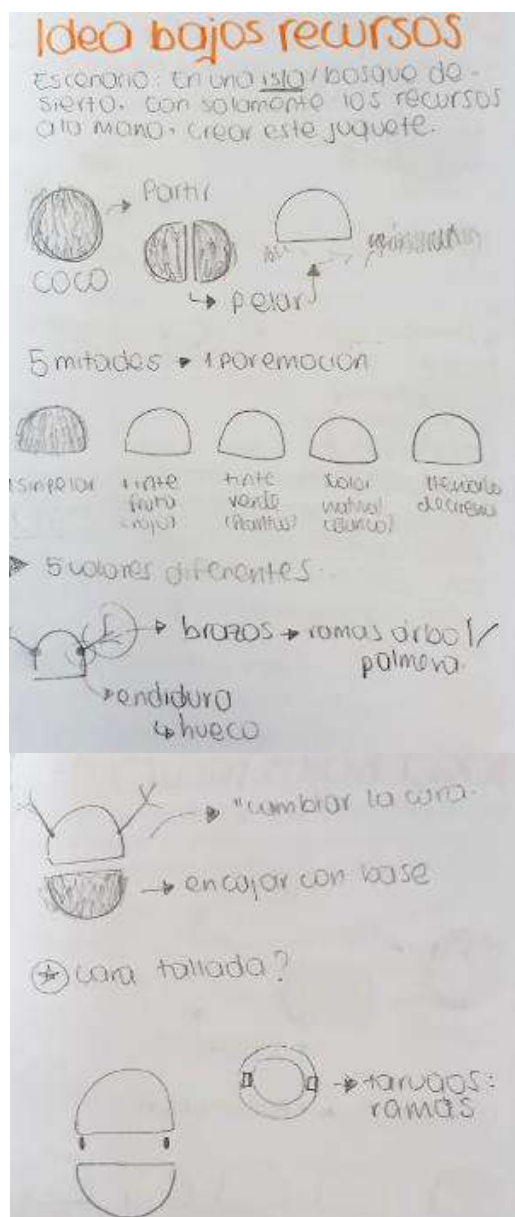 Idea bajos recursos
Escenario: En una isla/bosque de-
sierto. con solamente los recursos
a la mano. crear este juguete.
Partir
COCO
pelar
5 mitades 1 por emoción
sin pelar
tinte
fruta
(rojo)
tinte
verde
(plantas)
color
natural
(blanco)
5 colores diferentes.
brazos ramas árbol/
palmera.
endidura
hueco
"cambiar la cara.
encajar con base
cara tallada?
tarugos:
ramas